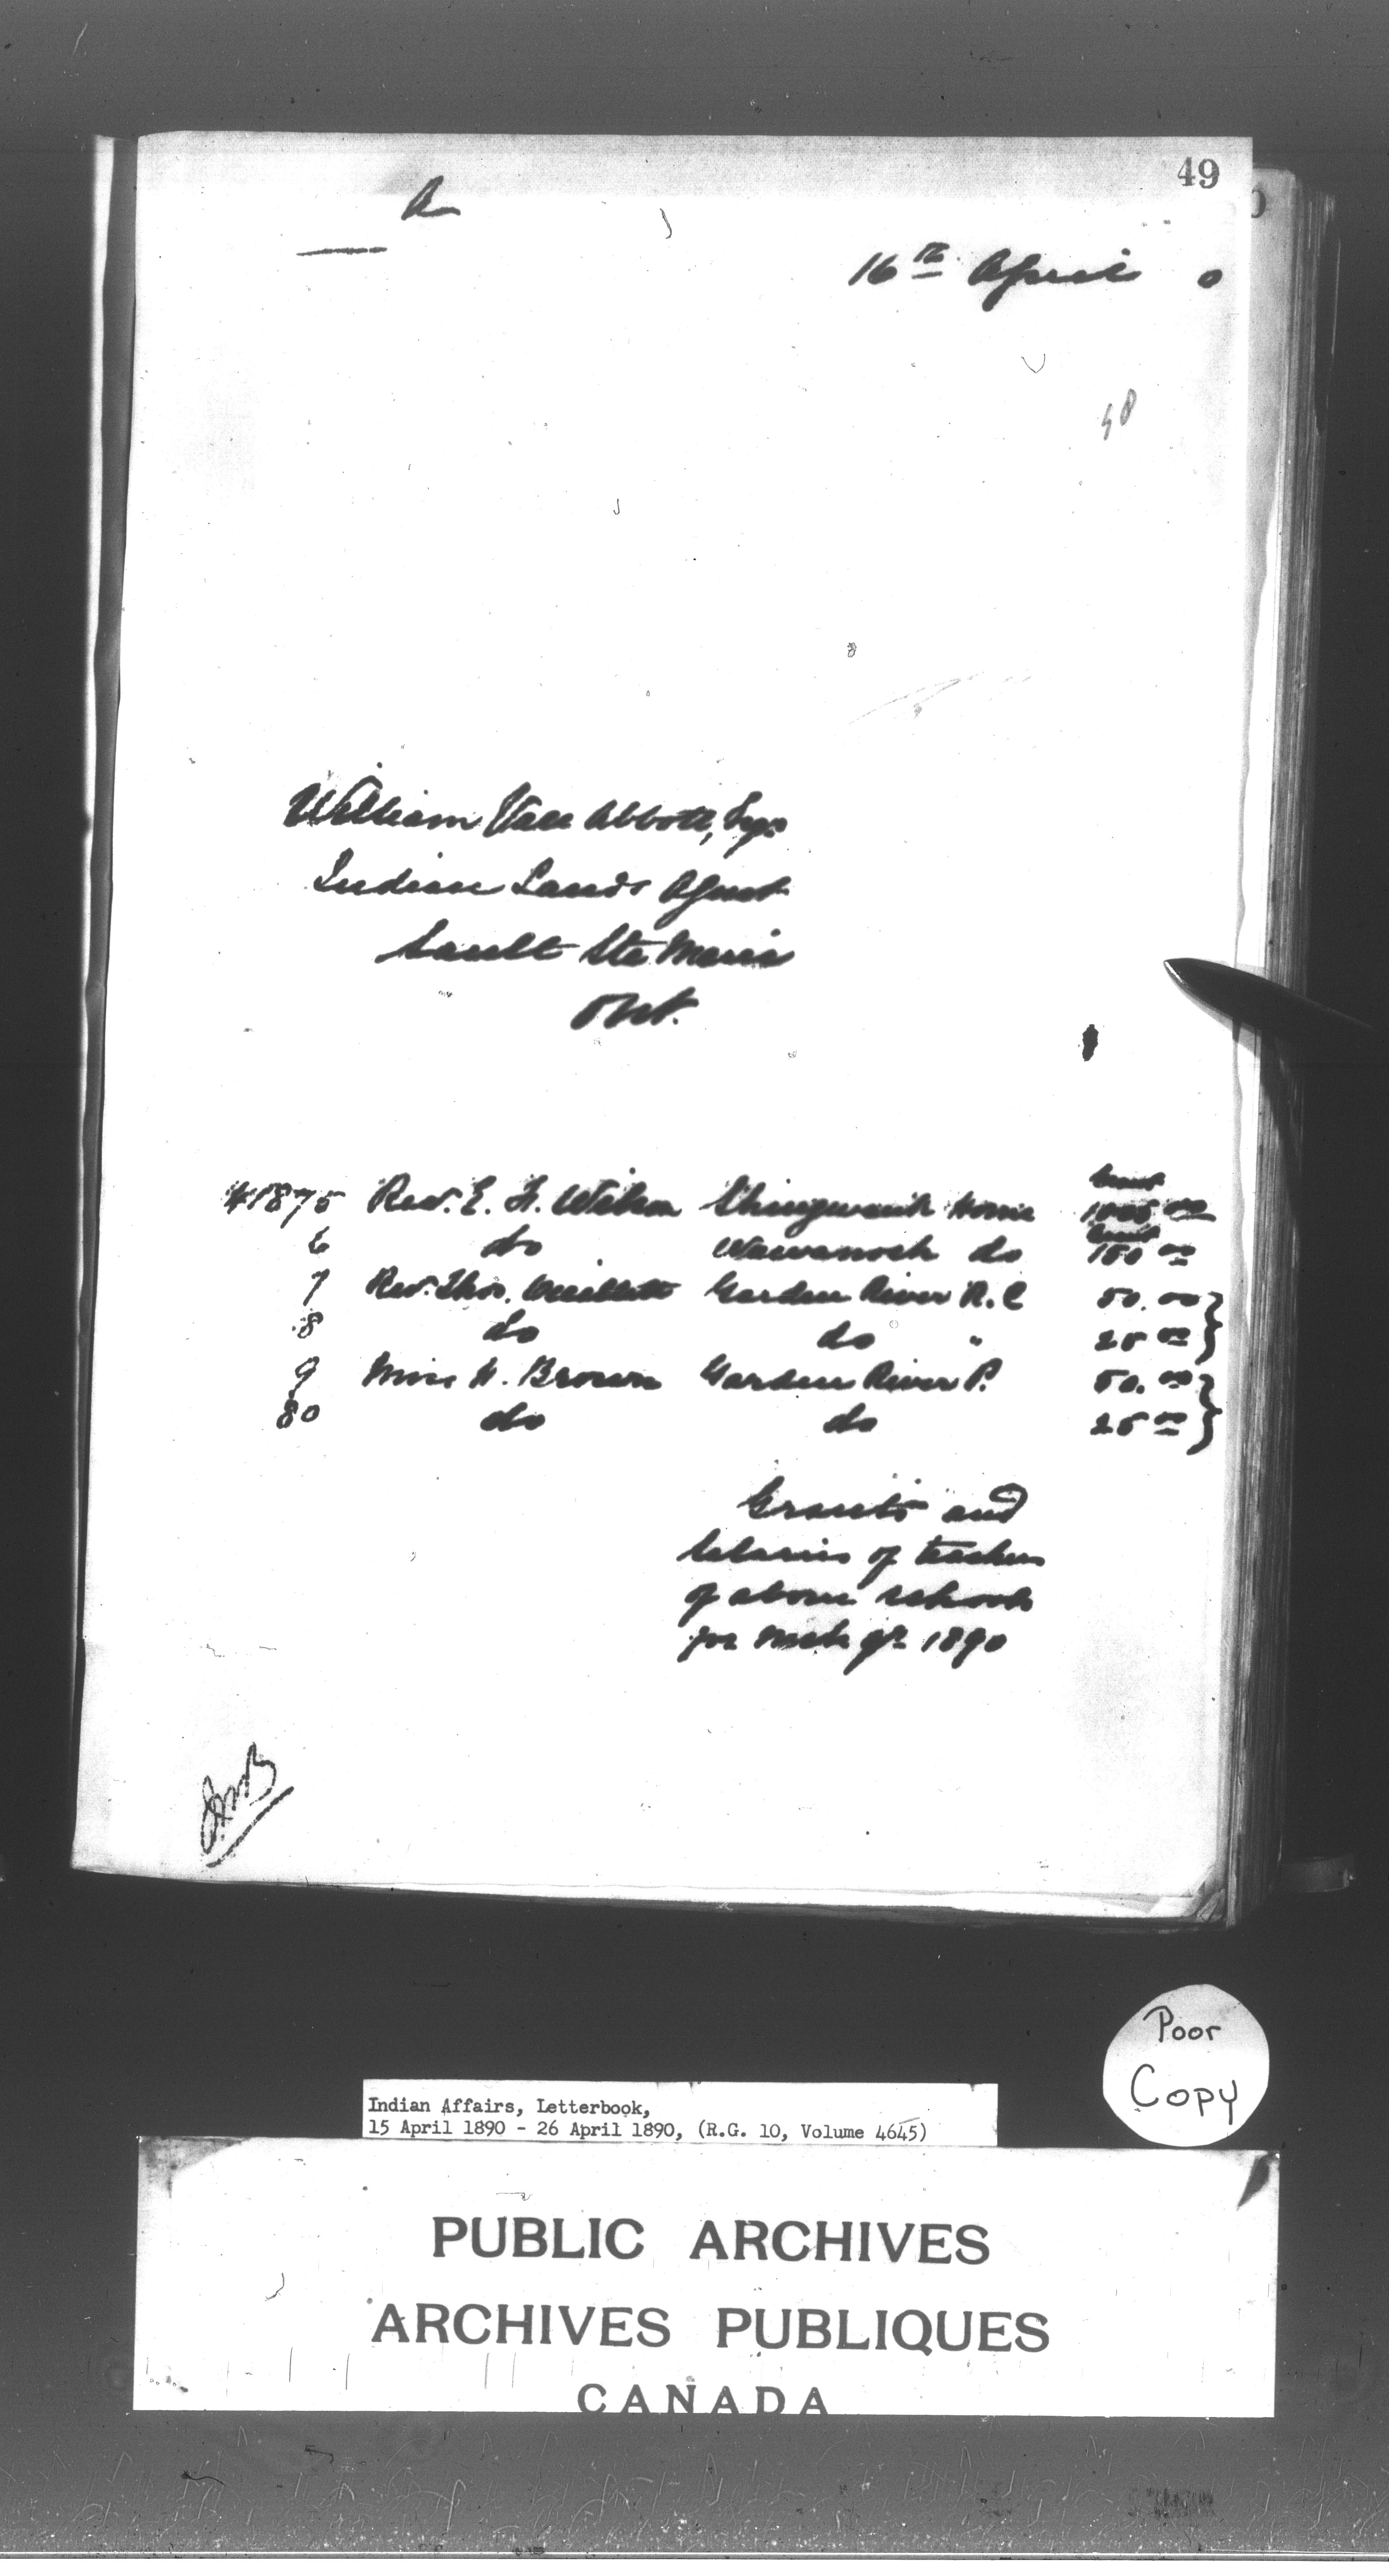 49
A
16th April 0
48
William Van Abbott, Esq
Indian Lands Agent
Sault Ste Marie
Ont.
Grant
#1875 Rev. E. F. Wilson Shingwauk Home 00
Grant
6 do Wawanosh do 150 00
7 Rev. Thos. Ouellette Garden River R.C 50.00
8 do do " 25 00
9 Miss H. Brown Garden River P. 50.00
80 do do 25 00
Grants and
Salaries of teachers
of above schools
for Mch qr 1890
Poor
Copy
Indian Affairs, Letterbook,
15 April 1890 - 26 April 1890, (R.G. 10, Volume 4645)
PUBLIC ARCHIVES
ARCHIVES PUBLIQUES
CANADA